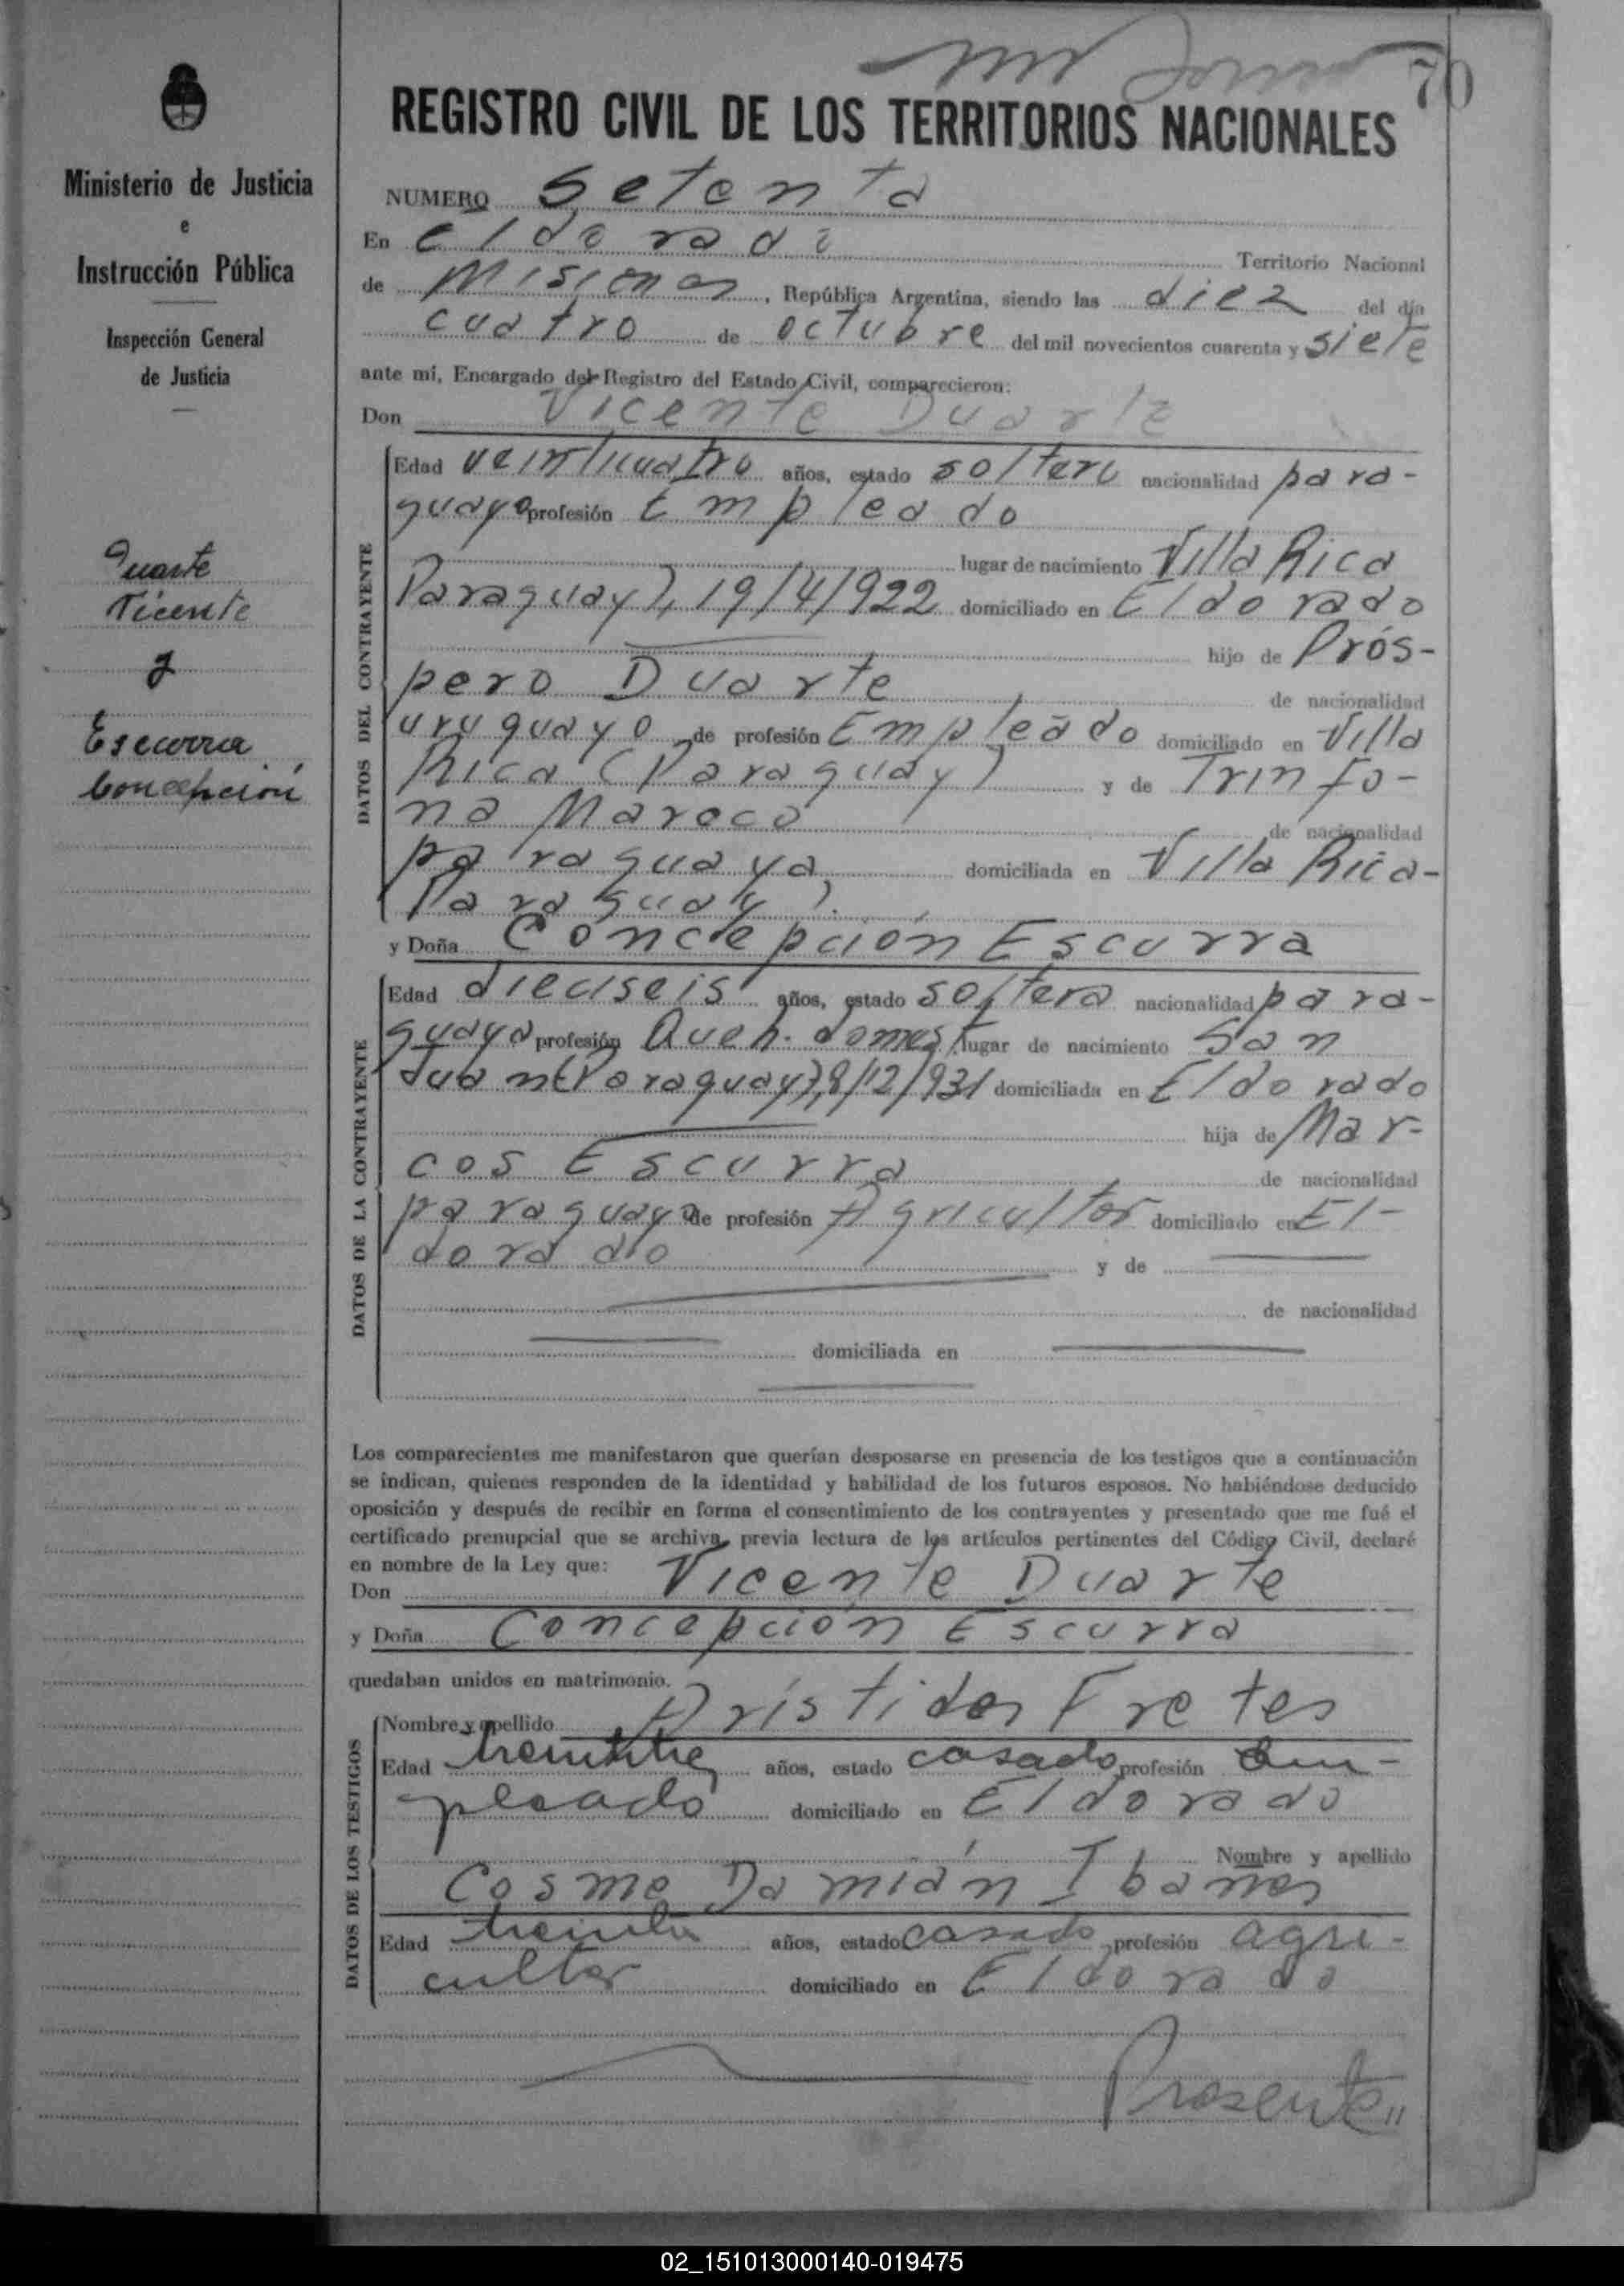 70
REGISTRO CIVIL DE LOS TERRITORIOS NACIONALES
Ministerio de Justicia
e
Instrucción Pública
Inspección General
de Justicia
Duarte
Vicente
y
Escurra
Concepción
NUMERO Setenta
En Eldorado Territorio Nacional
de Misiones, República Argentina, siendo las diez del día
cuatro de octubre del mil novecientos cuarenta y siete
ante mí, Encargado del Registro del Estado Civil, comparecieron:
Don Vicente Duarte
DATOS DEL CONTRAYENTE
Edad veinticuatro años, estado soltero nacionalidad para-
guayo profesión Empleado
lugar de nacimiento Villa Rica
Paraguay), 19/4/922 domiciliado en Eldorado
hijo de Prós-
pero Duarte de nacionalidad
uruguayo de profesión Empleado domiciliado en Villa
Rica (Paraguay) y de Trinfo-
na Mareco de nacionalidad
paraguaya, domiciliada en Villa Rica-
Paraguay).
y Doña Concepción Escurra
DATOS DE LA CONTRAYENTE
Edad dieciseis años, estado soltera nacionalidad para-
guaya profesión Queh. domést. lugar de nacimiento San
Juan (Paraguay), 8/12/931 domiciliada en Eldorado
hija de Mar-
cos Escurra de nacionalidad
paraguayo de profesión Agricultor domiciliado en El-
dorado y de
de nacionalidad
domiciliada en
Los comparecientes me manifestaron que querían desposarse en presencia de los testigos que a continuación
se indican, quienes responden de la identidad y habilidad de los futuros esposos. No habiéndose deducido
oposición y después de recibir en forma el consentimiento de los contrayentes y presentado que me fué el
certificado prenupcial que se archiva, previa lectura de los artículos pertinentes del Código Civil, declaré
en nombre de la Ley que:
Don Vicente Duarte
y Doña Concepción Escurra
quedaban unidos en matrimonio.
DATOS DE LOS TESTIGOS
Nombre y apellido Arístides Fretes
Edad años, estado casado profesión Em-
pleado domiciliado en Eldorado
Nombre y apellido
Cosme Damián Ibañes
Edad treinta años, estado casado profesión agri-
cultor domiciliado en Eldorado
Presente"
02_151013000140-019475